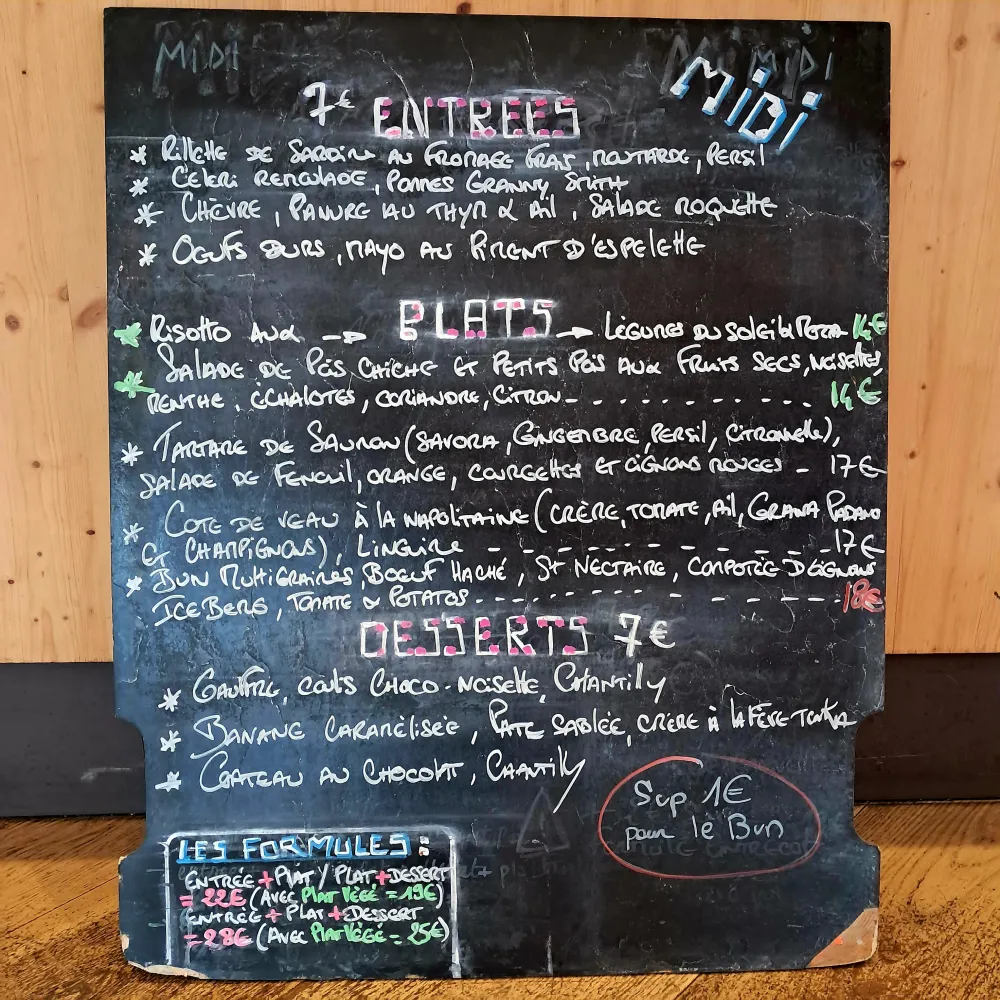 MIDI
MIDI
7€ ENTREES
* Rillette de Sardine au Fromage Frais, moutarde, Persil
* Céleri Remoulade, Pommes Granny Smith
* Chèvre, Panure au Thym & Ail, Salade Roquette
* Oeufs durs, mayo au Piment d'Espelette
PLATS
* Risotto aux → → Légumes du Soleil & Feta 14€
* Salade de Pois Chiche et Petits Pois aux Fruits Secs, Noisettes,
menthe, échalotes, coriandre, citron - - - - - - - - - - - 14€
* Tartare de Saumon (Savora, Gingembre, Persil, Citronnelle),
Salade de Fenouil, orange, courgettes et oignons rouges - 17€
* Cote de veau à la napolitaine (crème, tomate, ail, Grana Padano
et champignons), Linguine - - - - - - - - - - - 17€
* Bun Multigraines, Boeuf Haché, St Nectaire, Compotée d'oignons
Iceberg, Tomate & Potatos - - - - - - - - - - - 18€
DESSERTS 7€
* Gaufre, coulis Choco-noisette, Chantilly
* Banane caramélisée, Pate sablée, crème à la Fève Tonka
* Gateau au chocolat, Chantilly
Sup 1€
pour le Bun
LES FORMULES :
Entrée + Plat / Plat + Dessert
= 22€ (Avec Plat Végé = 19€)
Entrée + Plat + Dessert
= 28€ (Avec Plat Végé - 25€)